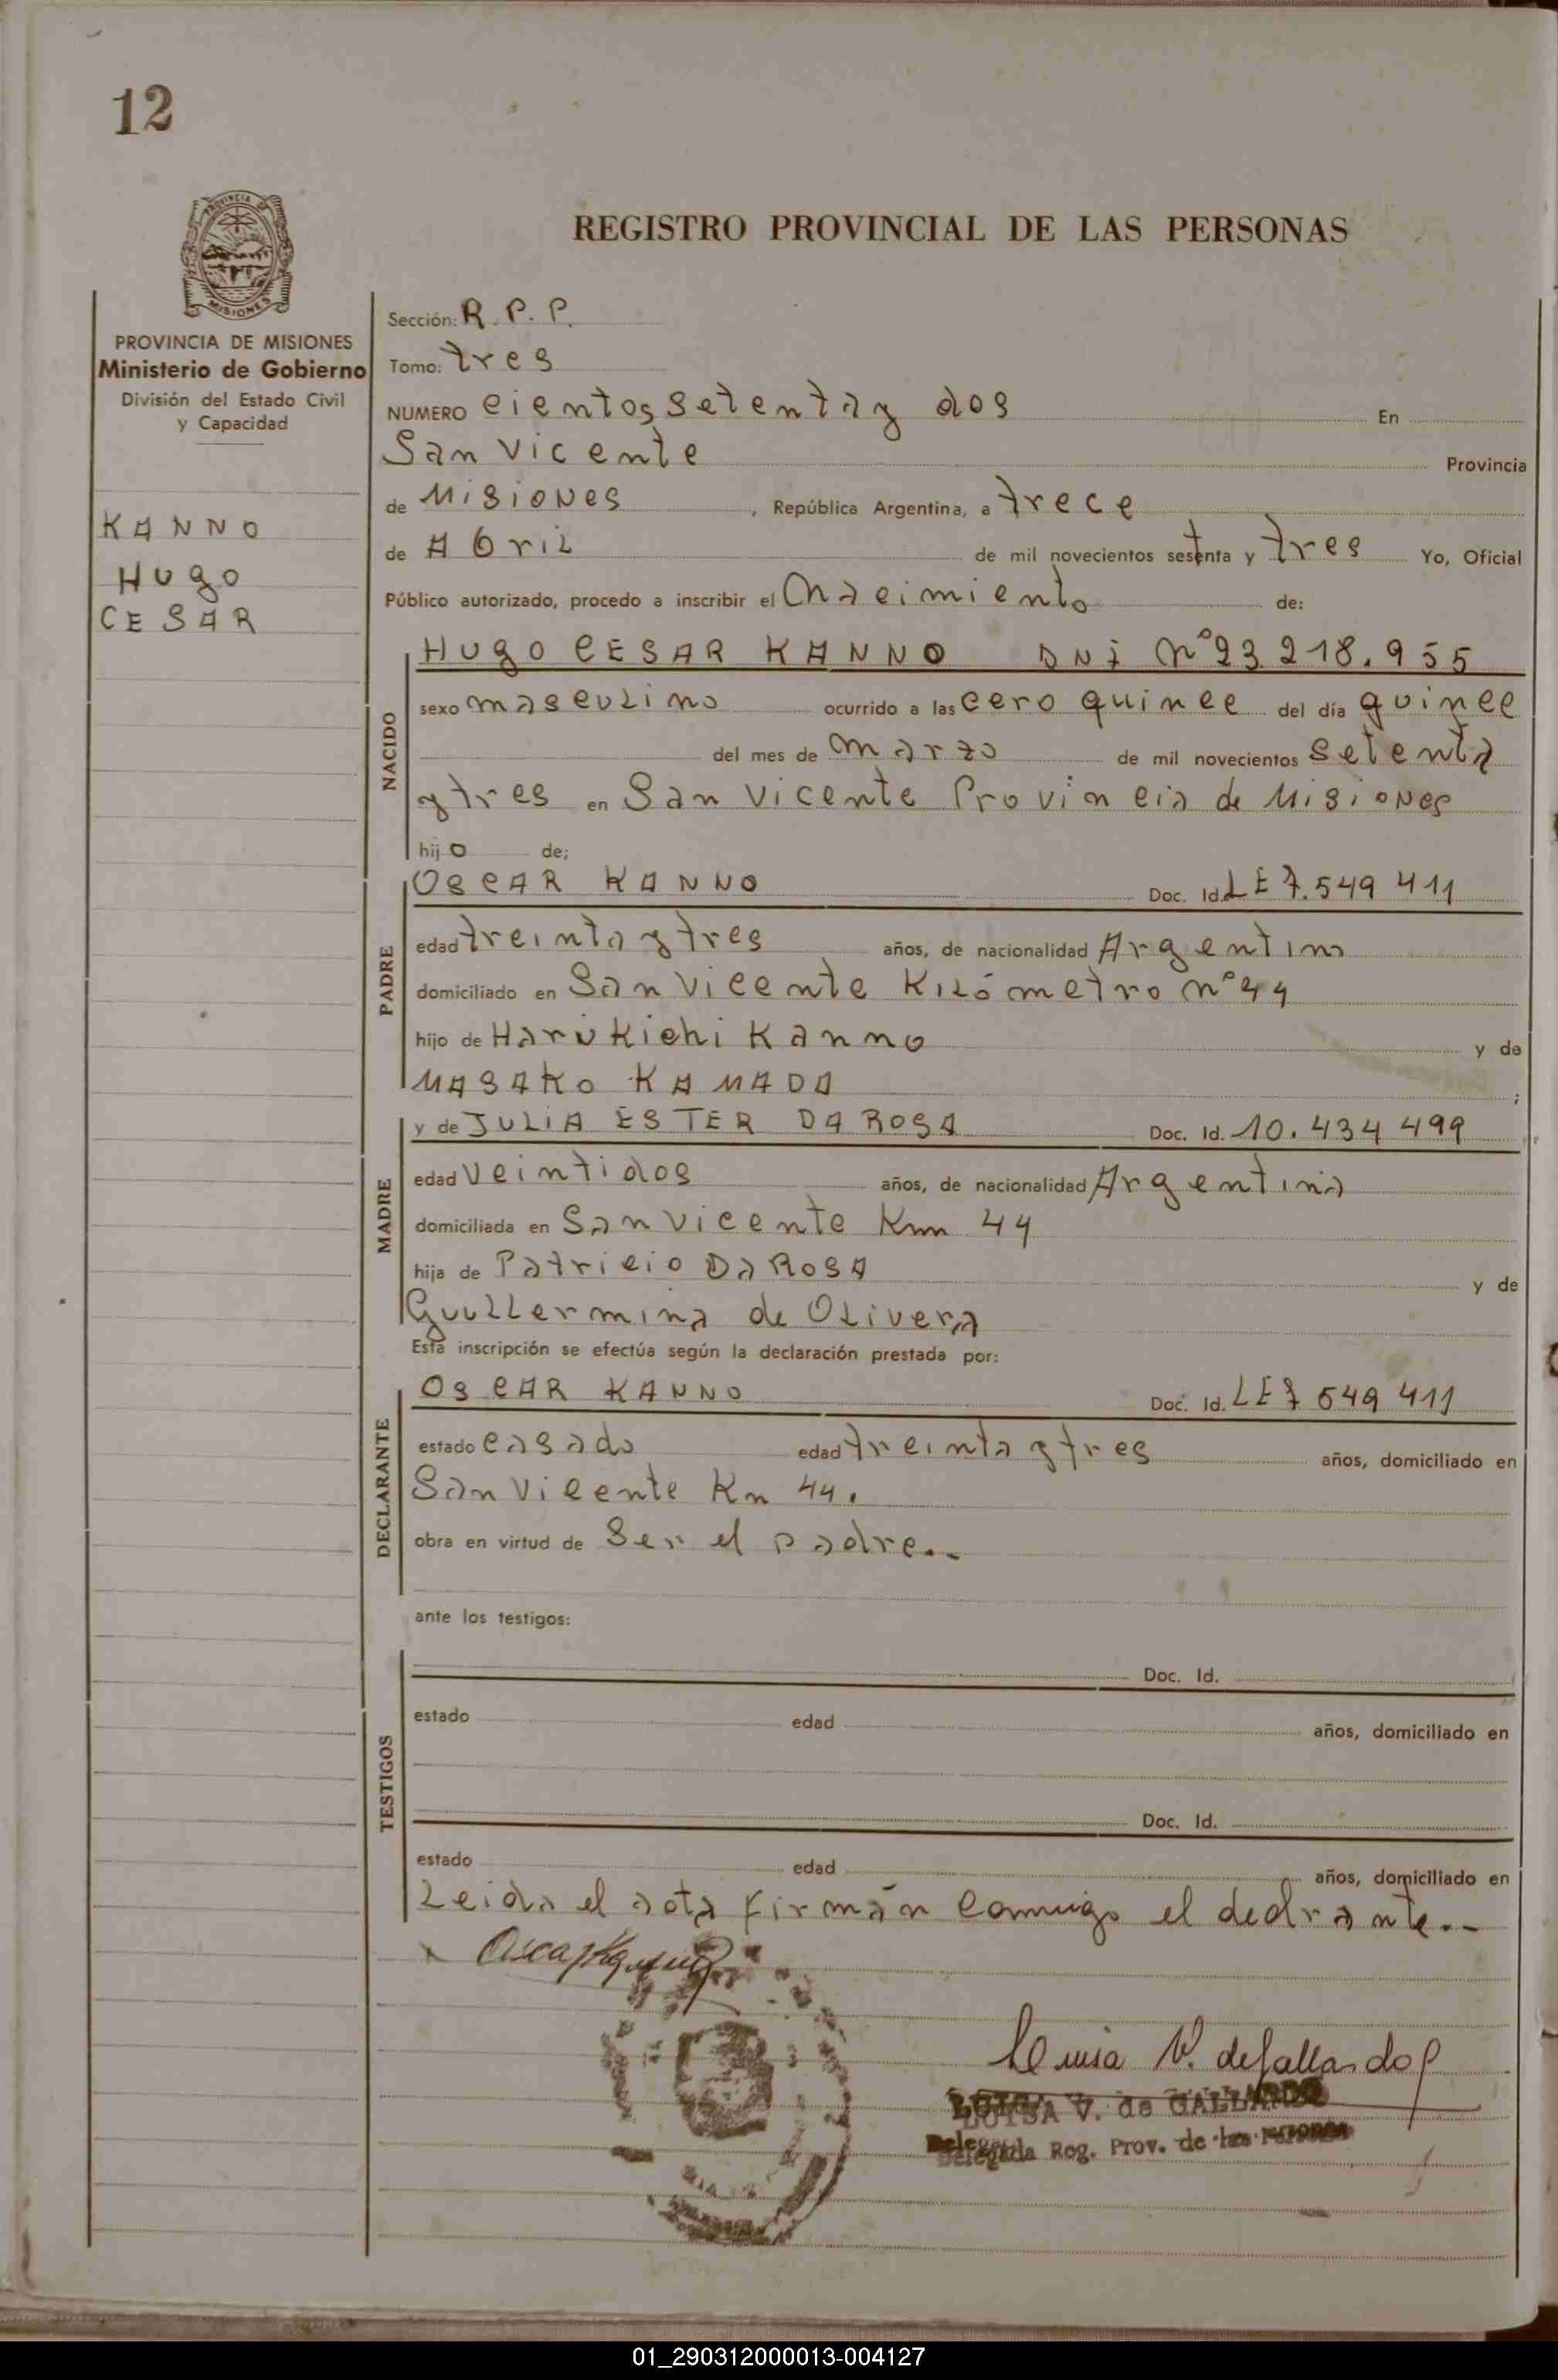 12
PROVINCIA DE
MISIONES
PROVINCIA DE MISIONES
Ministerio de Gobierno
División del Estado Civil
y Capacidad
KANNO
HUgO
CESAR
REGISTRO PROVINCIAL DE LAS PERSONAS
Sección: R. P. P.
Tomo: tres
NUMERO cientos setenta y dos En
San Vicente Provincia
de Misiones, República Argentina, a trece
de Abril de mil novecientos setenta y tres Yo, Oficial
Público autorizado, procedo a inscribir el Nacimiento de:
NACIDO
HUgO CESAR KANNO DNi Nº 23.218.955
sexo masculino ocurrido a las cero quince del día quince
del mes de Marzo de mil novecientos setenta
y tres en San Vicente Provincia de Misiones
hijo de;
PADRE
OSCAR KANNO Doc. Id. LE 7.549 411
edad treinta y tres años, de nacionalidad Argentino
domiciliado en San Vicente Kilómetro nº 44
hijo de Harukichi Kanno y de
MASAKO KAMADA ;
MADRE
y de JULiA ESTER DA ROSA Doc. Id. 10.434 499
edad veintidos años, de nacionalidad Argentina
domiciliada en San Vicente Km 44
hija de Patricio Da ROSA y de
Guillermina de Olivera
Esta inscripción se efectúa según la declaración prestada por:
DECLARANTE
OSCAR KANNO Doc. Id. LE 7 549 411
estado casado edad treinta y tres años, domiciliado en
San Vicente Km 44.
obra en virtud de Ser el padre..
ante los testigos:
TESTIGOS
Doc. Id.
estado edad años, domiciliado en
Doc. Id.
estado edad años, domiciliado en
Leida el acta firmán conmigo el declarante..
x Oscar Kanno
Luisa V. de Gallardo
LUISA V. de GALLARDO
Delegada Reg. Prov. de las Personas
01_290312000013-004127